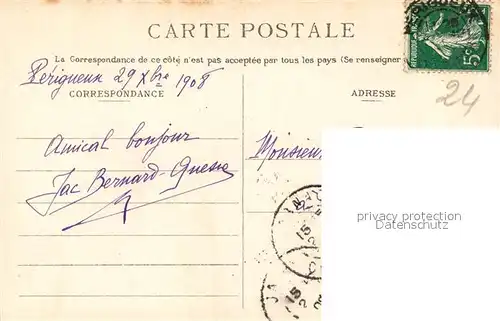 CARTE POSTALE
La Correspondance de ce côté n'est pas acceptée par tous les pays (Se renseigner
Périgueux 29 Xbre 1908
CORRESPONDANCE
ADRESSE
RÉPUBLIQUE
5c
24
Amical bonjour
Monsieur
Jac Bernard-
privacy protection
www.oldthing.de